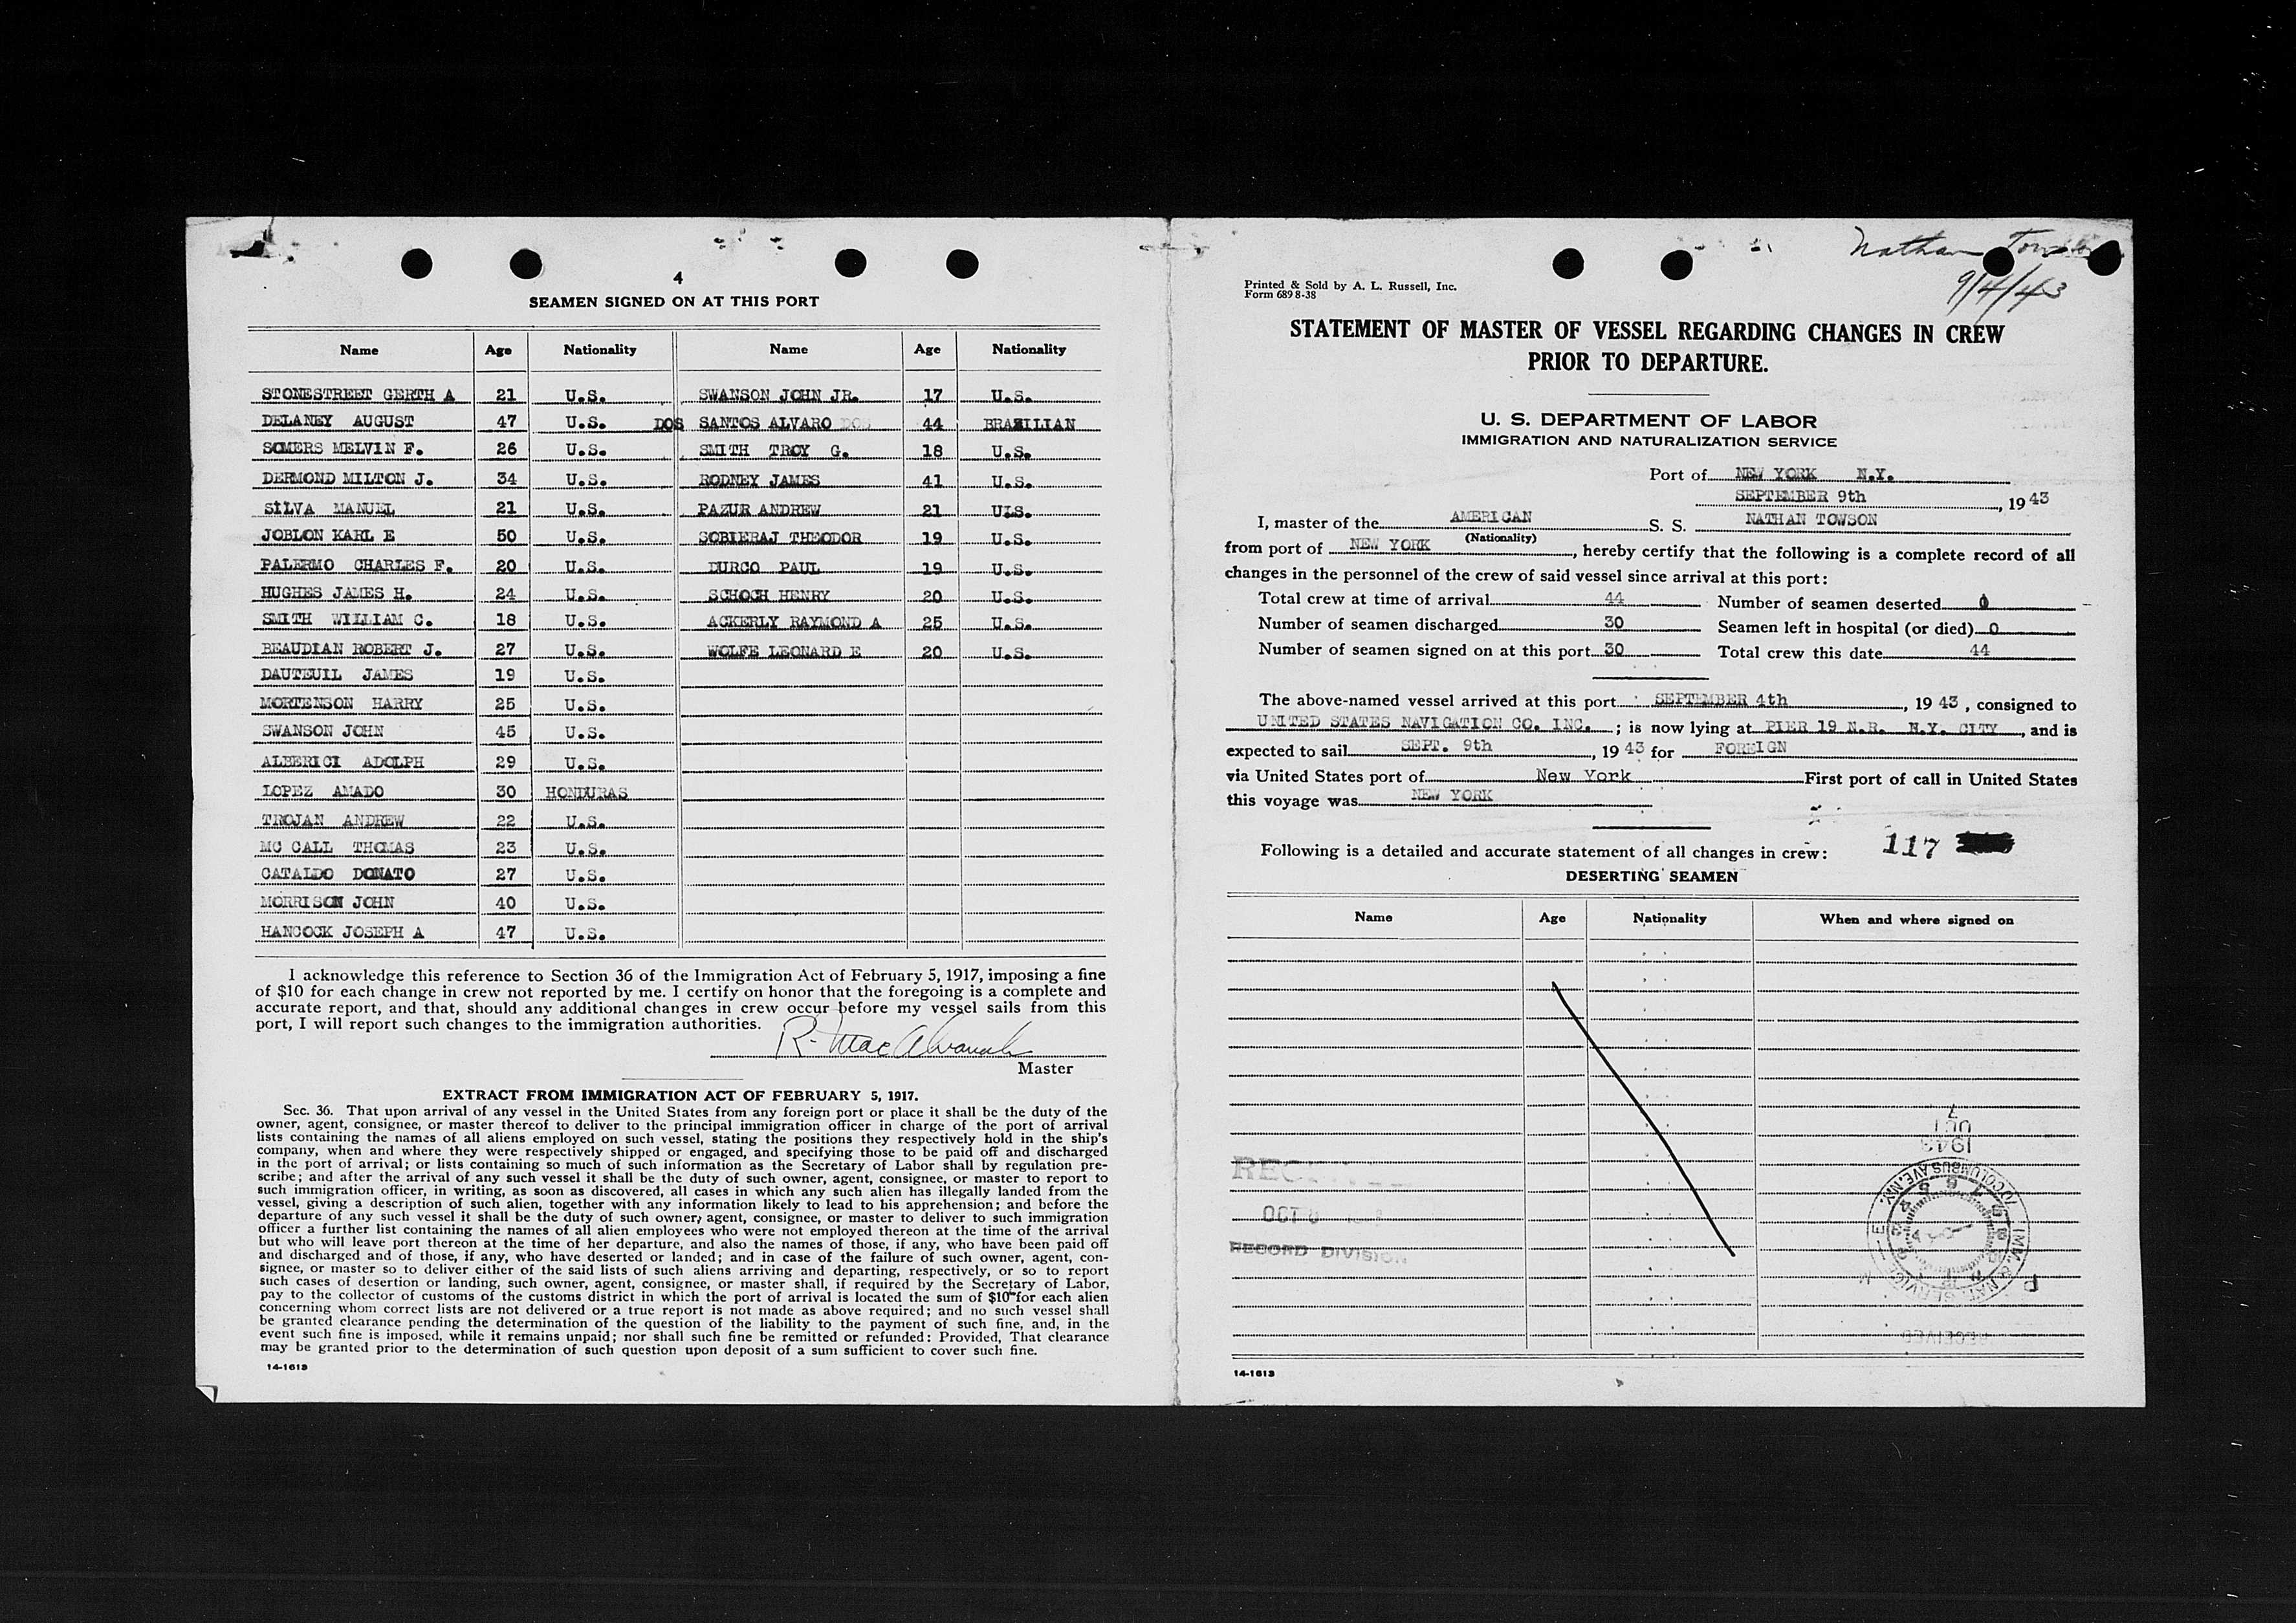 4
SEAMEN SIGNED ON AT THIS PORT
Name Age Nationality Name Age Nationality
STONESTREET GERTH A 21 U.S. SWANSON JOHN JR. 17 U.S.
DELANEY AUGUST 47 U.S. DOS SANTOS ALVARO DOS 44 BRAZILIAN
SOMERS MELVIN F. 26 U.S. SMITH TROY G. 18 U.S.
DERMOND MILTON J. 34 U.S. RODNEY JAMES 41 U.S.
SILVA MANUEL 21 U.S. PAZUR ANDREW 21 UIS.
JOBLON KARL E 50 U.S. SOBIERAJ THEODOR 19 U.S.
PALERMO CHARLES F. 20 U.S. DURCO PAUL 19 U.S.
HUGHES JAMES H. 24 U.S. SCHOCH HENRY 20 U.S.
SMITH WILLIAM C. 18 U.S. ACKERLY RAYMOND A 25 U.S.
BEAUDIAN ROBERT J. 27 U.S. WOLFE LEONARD E 20 U.S.
DAUTEUIL JAMES 19 U.S.
MORTENSON HARRY 25 U.S.
SWANSON JOHN 45 U.S.
ALBERICI ADOLPH 29 U.S.
LOPEZ AMADO 30 HONDURAS
TROJAN ANDREW 22 U.S.
MC CALL THOMAS 23 U.S.
CATALDO DONATO 27 U.S.
MORRISON JOHN 40 U.S.
HANCOCK JOSEPH A 47 U.S.
I acknowledge this reference to Section 36 of the Immigration Act of February 5, 1917, imposing a fine
of $10 for each change in crew not reported by me. I certify on honor that the foregoing is a complete and
accurate report, and that, should any additional changes in crew occur before my vessel sails from this
port, I will report such changes to the immigration authorities.
R. Mac
Master
EXTRACT FROM IMMIGRATION ACT OF FEBRUARY 5, 1917.
Sec. 36. That upon arrival of any vessel in the United States from any foreign port or place it shall be the duty of the
owner, agent, consignee, or master thereof to deliver to the principal immigration officer in charge of the port of arrival
lists containing the names of all aliens employed on such vessel, stating the positions they respectively hold in the ship's
company, when and where they were respectively shipped or engaged, and specifying those to be paid off and discharged
in the port of arrival; or lists containing so much of such information as the Secretary of Labor shall by regulation pre-
scribe; and after the arrival of any such vessel it shall be the duty of such owner, agent, consignee, or master to report to
such immigration officer, in writing, as soon as discovered, all cases in which any such alien has illegally landed from the
vessel, giving a description of such alien, together with any information likely to lead to his apprehension; and before the
departure of any such vessel it shall be the duty of such owner, agent, consignee, or master to deliver to such immigration
officer a further list containing the names of all alien employees who were not employed thereon at the time of the arrival
but who will leave port thereon at the time of her departure, and also the names of those, if any, who have been paid off
and discharged and of those, if any, who have deserted or landed; and in case of the failure of such owner, agent, con-
signee, or master so to deliver either of the said lists of such aliens arriving and departing, respectively, or so to report
such cases of desertion or landing, such owner, agent, consignee, or master shall, if required by the Secretary of Labor,
pay to the collector of customs of the customs district in which the port of arrival is located the sum of $10 for each alien
concerning whom correct lists are not delivered or a true report is not made as above required; and no such vessel shall
be granted clearance pending the determination of the question of the liability to the payment of such fine, and, in the
event such fine is imposed, while it remains unpaid; nor shall such fine be remitted or refunded: Provided, That clearance
may be granted prior to the determination of such question upon deposit of a sum sufficient to cover such fine.
14-1613
Nathan Towson
9/4/43
Printed & Sold by A. L. Russell, Inc.
Form 689 8-38
STATEMENT OF MASTER OF VESSEL REGARDING CHANGES IN CREW
PRIOR TO DEPARTURE.
U. S. DEPARTMENT OF LABOR
IMMIGRATION AND NATURALIZATION SERVICE
Port of NEW YORK N.Y.
SEPTEMBER 9th, 1943
I, master of the AMERICAN S. S. NATHAN TOWSON
(Nationality)
from port of NEW YORK, hereby certify that the following is a complete record of all
changes in the personnel of the crew of said vessel since arrival at this port:
Total crew at time of arrival 44 Number of seamen deserted 0
Number of seamen discharged 30 Seamen left in hospital (or died) 0
Number of seamen signed on at this port 30 Total crew this date 44
The above-named vessel arrived at this port SEPTEMBER 4th, 1943, consigned to
UNITED STATES NAVIGATION CO. INC.; is now lying at PIER 19 N.R. N.Y. CITY, and is
expected to sail SEPT. 9th, 1943 for FOREIGN
via United States port of New York First port of call in United States
this voyage was NEW YORK
117
Following is a detailed and accurate statement of all changes in crew:
DESERTING SEAMEN
Name Age Nationality When and where signed on
OCT
RECORD DIVISION
1943
OCT
7
IMM. & NAT. SERVICE
70 COLUMBUS AVE. N.Y.
P M
RECEIVED
14-1613